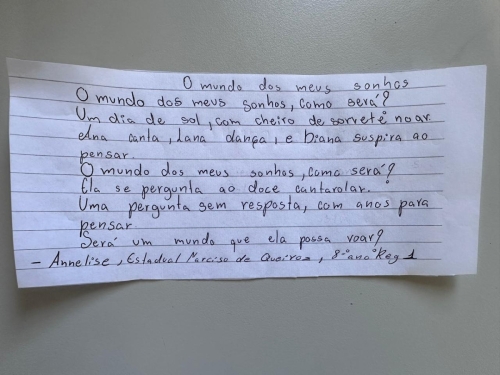 O mundo dos meus sonhos
O mundo dos meus sonhos, como será?
Um dia de sol, com cheiro de sorvete no ar
Ana canta, Lana dança, e Diana suspira ao
pensar.
O mundo dos meus sonhos, como será?
Ela se pergunta ao doce cantarolar.
Uma pergunta sem resposta, com anos para
pensar
Será um mundo que ela possa voar?
- Annelise, Estadual Narciso de Queiroz, 8° ano Reg 1